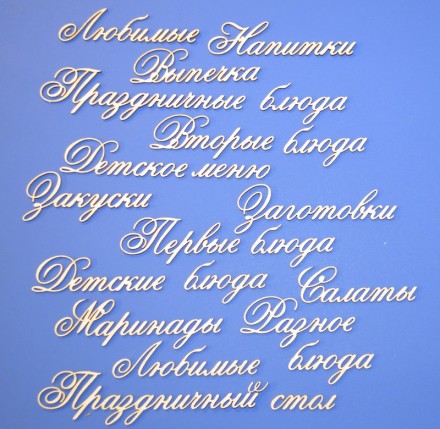 Любимые Напитки
Выпечка
Праздничные блюда
Вторые блюда
Детское меню
Закуски Заготовки
Первые блюда
Детские блюда Салаты
Маринады Разное
Любимые блюда
Праздничный стол